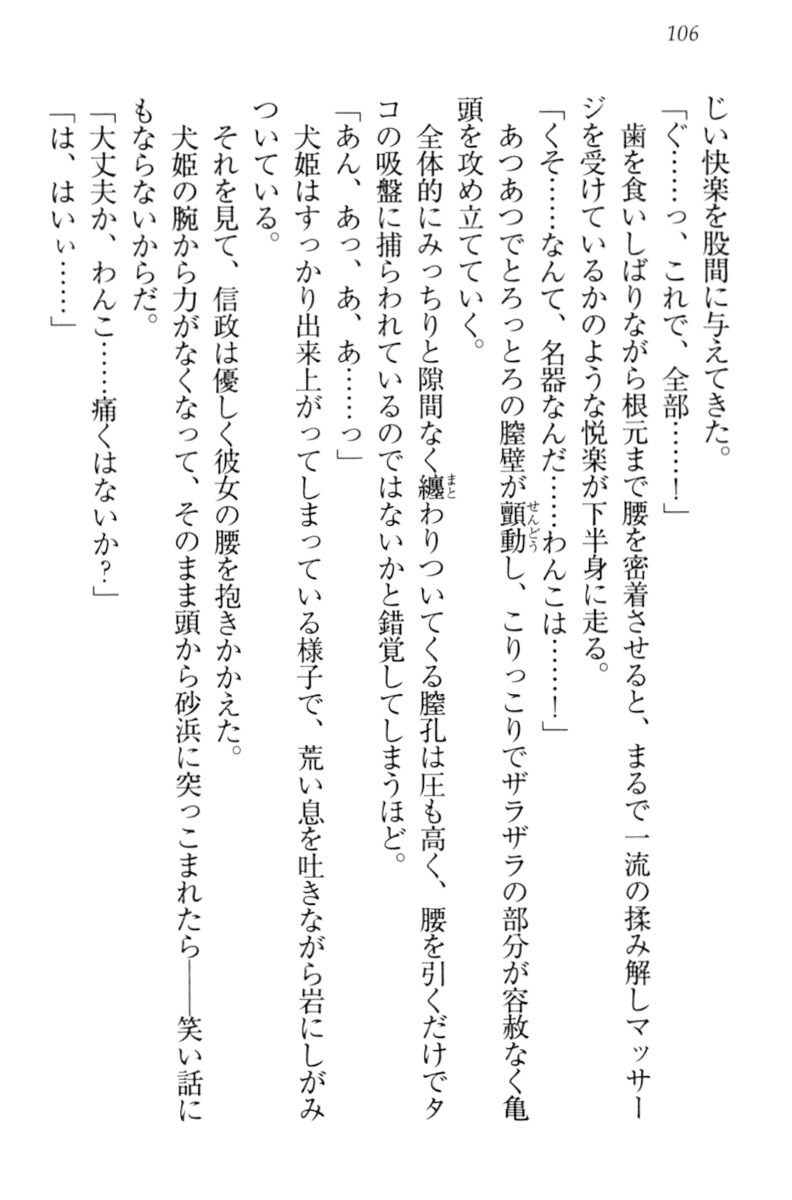 106
じい快楽を股間に与えてきた。
「ぐ……っ、これで、全部……！」
歯を食いしばりながら根元まで腰を密着させると、まるで一流の揉み解しマッサー
ジを受けているかのような悦楽が下半身に走る。
「くそ……なんて、名器なんだ……わんこは……！」
あつあつでとろっとろの膣壁が顫動し、こりっこりでザラザラの部分が容赦なく亀
せんどう
頭を攻め立てていく。
全体的にみっちりと隙間なく纏わりついてくる膣孔は圧も高く、腰を引くだけでタ
まと
コの吸盤に捕らわれているのではないかと錯覚してしまうほど。
「あん、あっ、あ、あ……っ」
犬姫はすっかり出来上がってしまっている様子で、荒い息を吐きながら岩にしがみ
ついている。
それを見て、信政は優しく彼女の腰を抱きかかえた。
犬姫の腕から力がなくなって、そのまま頭から砂浜に突っこまれたら――笑い話に
もならないからだ。
「大丈夫か、わんこ……痛くはないか？」
「は、はいぃ……」